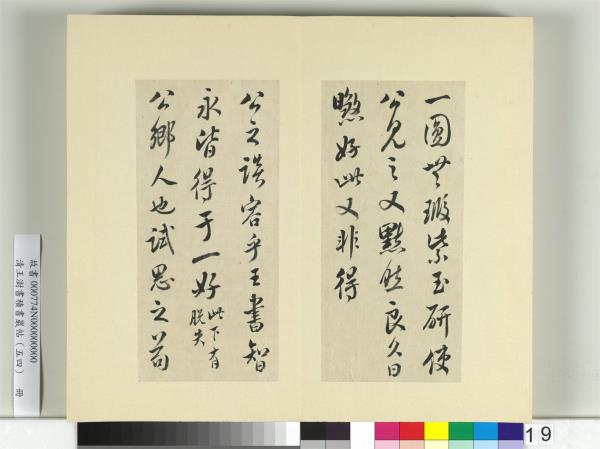 一圆无瑕紫玉研使
公见之又默然良久曰
好此又非得
公之谈容乎王书智
永皆得于一好此下有脱失
公乡人也试思之若
故書 000774N000000000
清王澍書積書巖帖(五四) 冊
19